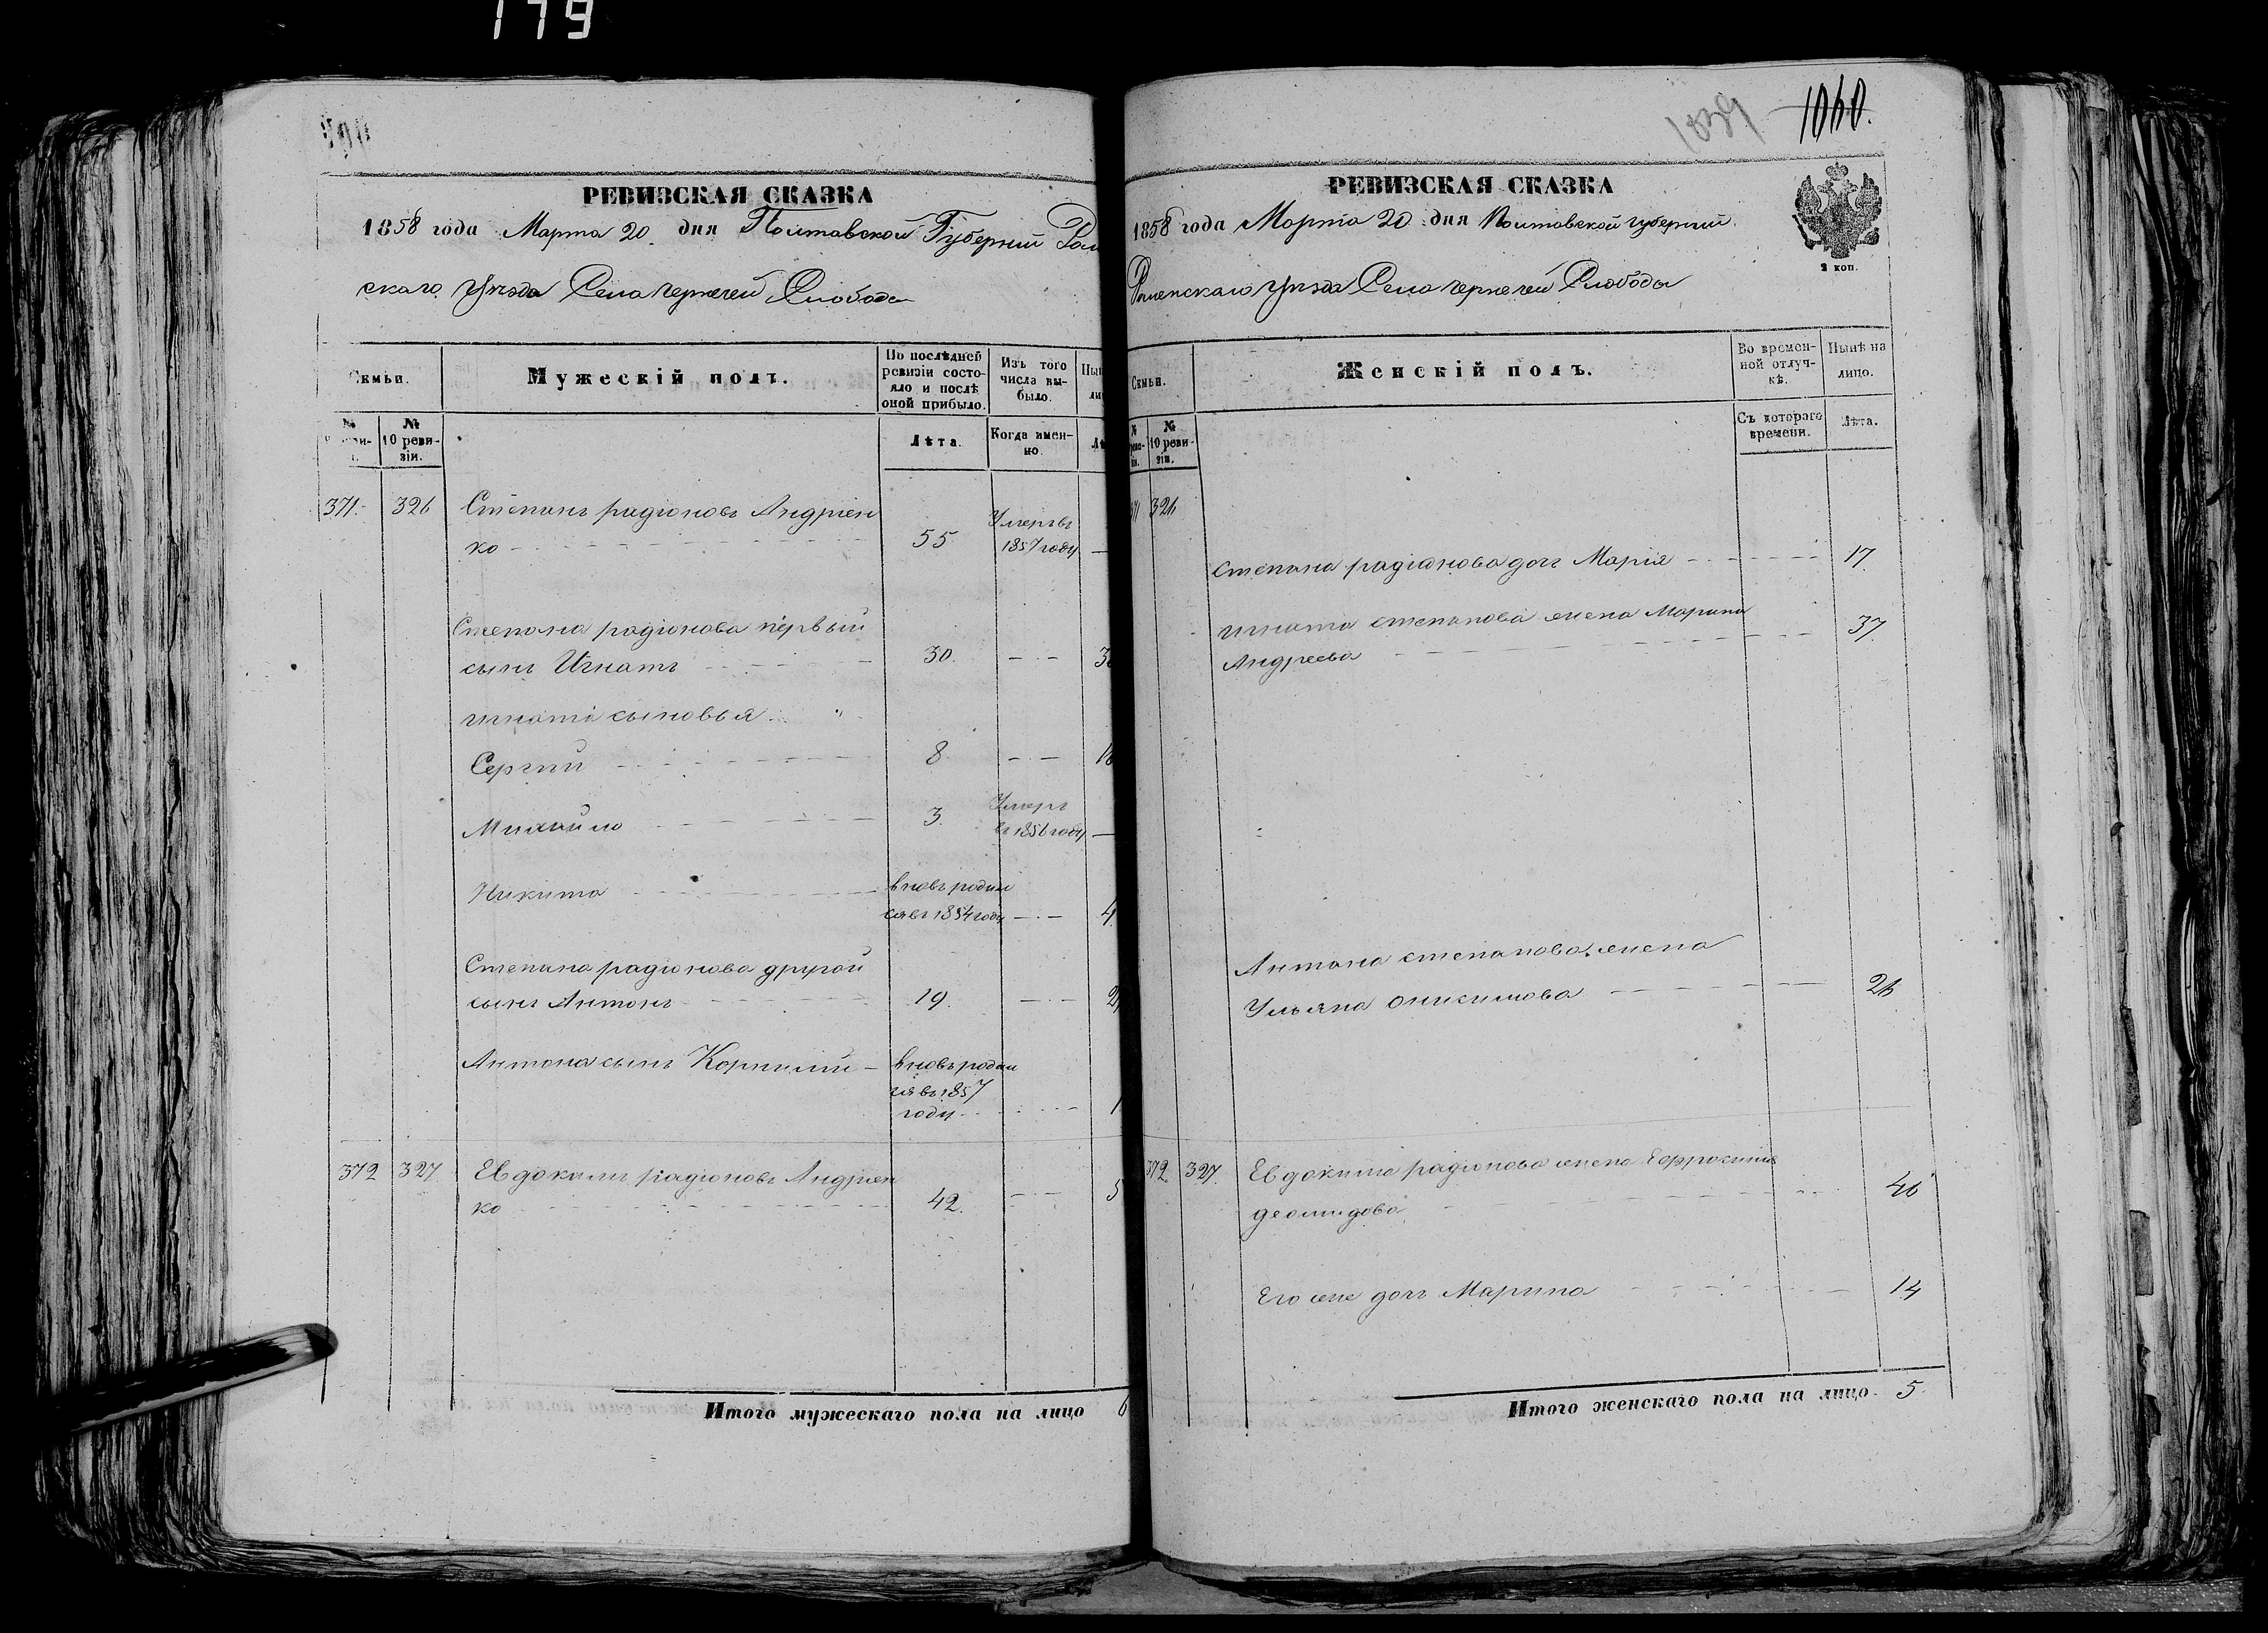 179
РЕВИЗСКАЯ СКАЗКА
1858 года Марта 20 дня Полтавской Губерніи Ром
скаго Уѣзда Села Чернечей Слободы
Семьи.
Мужескій полъ.
По послѣдней ревизіи состояло и послѣ оной прибыло.
Изъ того числа выбыло.
Лѣта.
Когда именно.
№
№ 10 ревизіи.
371. 326 Степанъ радіоновъ Андріен
ко 55 Умеръ въ 1857 году —
Степана радіонова первый
сынъ Игнатъ 30.
игната сыновья
Сергій 8
Михайло 3. Умеръ въ 1856 году —
Никита вновь родил
ся въ 1854 году 4
Степана радіонова другой
сынъ Антонъ 19.
Антона сынъ Корнилій — вновь родил
ся въ 1857
году 1
372 327 Евдокимъ радіоновъ Андріен
ко 42.
Итого мужескаго пола на лицо 6
1039 1060.
РЕВИЗСКАЯ СКАЗКА
1858 года Марта 20 дня Полтавской губерніи.
Роменскаго Уѣзда Села Чернечей Слободы
2 коп.
Семьи.
Женскій полъ.
Во временной отлучкѣ.
Нынѣ на лицо.
№ 10 ревизіи.
Съ котораго времени.
Лѣта.
371 326
степана радіонова доч Марія 17.
игната степанова жена Марина 37
Андреева
Антона степанова жена
Ульяна оникимова 26
372. 327. Евдокима радіонова жена Ефросинія
деомидова 46
Его же доч Марина 14
Итого женскаго пола на лицо 5.